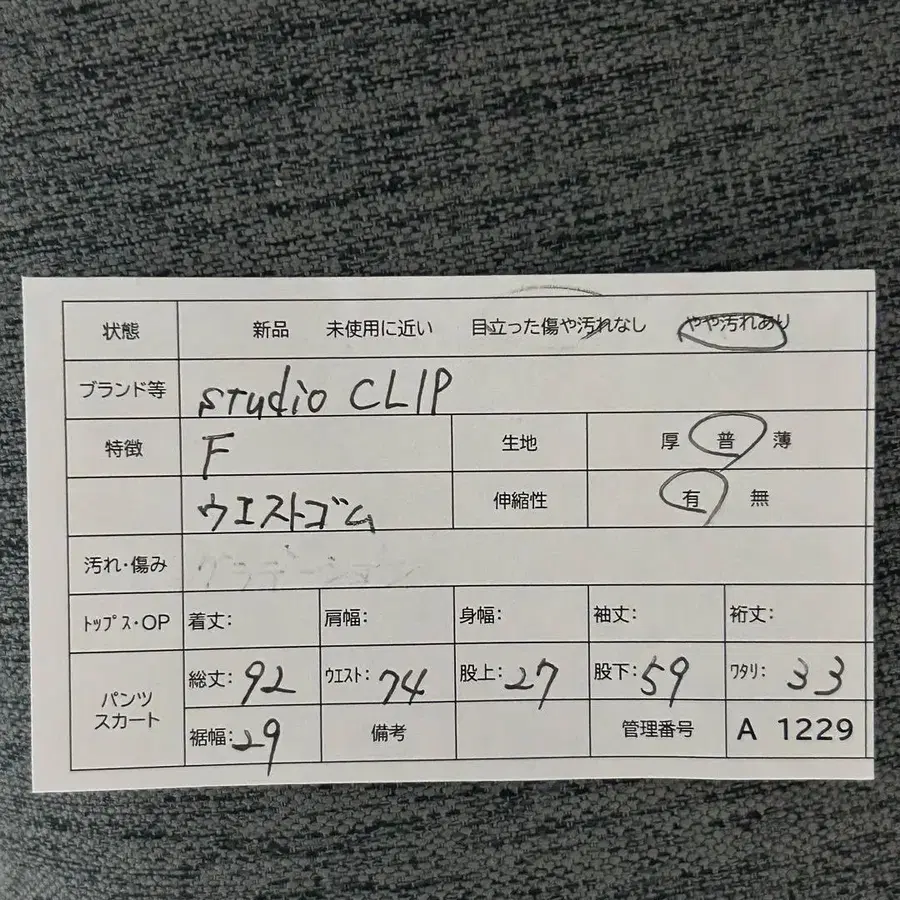 状態 新品 未使用に近い 目立った傷や汚れなし やや汚れあり
ブランド等 studio CLIP
特徴 F 生地 厚 普 薄
ウエストゴム 伸縮性 有 無
汚れ・傷み グラデーション
ﾄｯﾌﾟｽ・OP 着丈: 肩幅: 身幅: 袖丈: 裄丈:
パンツ スカート 総丈: 92 ｳｴｽﾄ: 74 股上: 27 股下: 59 ﾜﾀﾘ: 33
裾幅: 29 備考 管理番号 A 1229